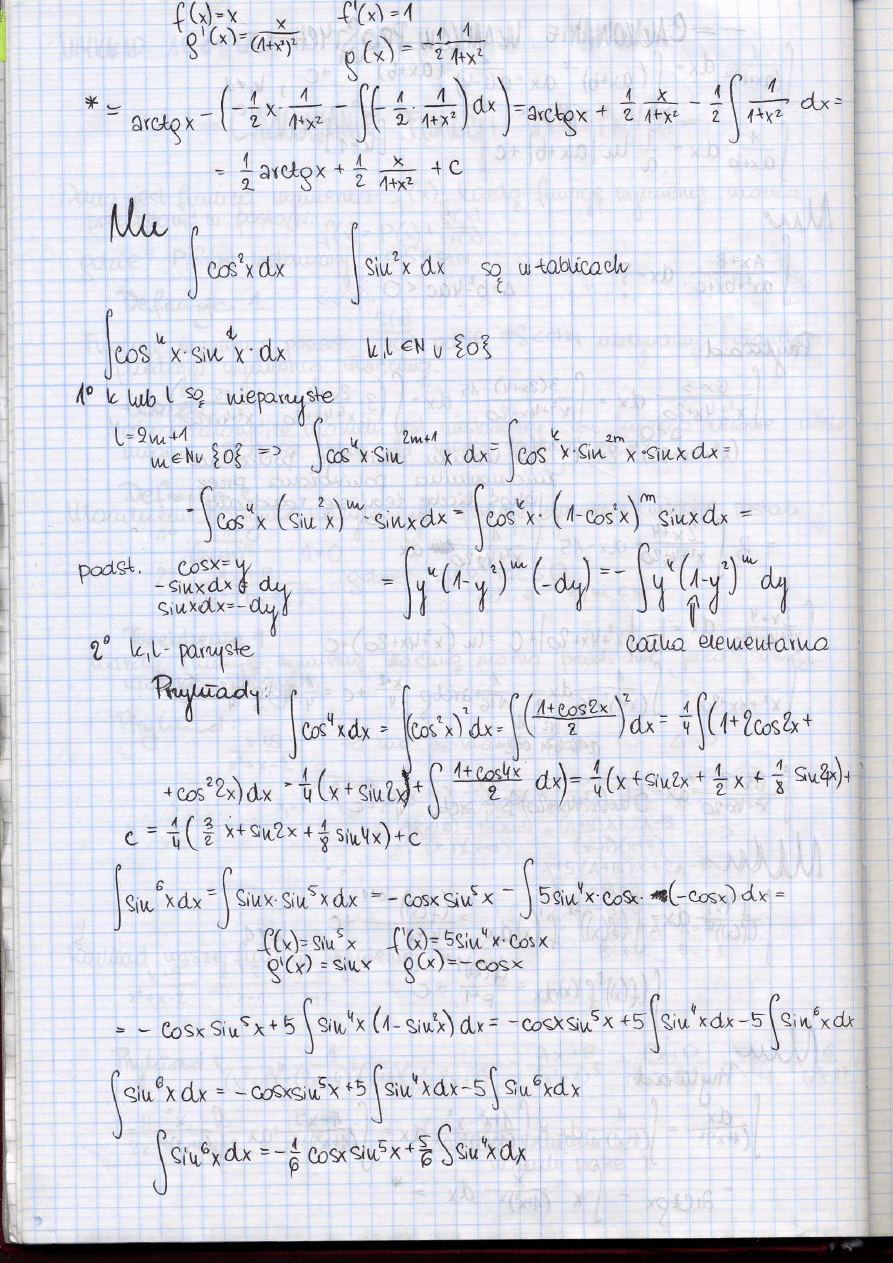 f(x)=x f'(x)=1
g'(x)=x/(1+x²)² g(x)=-1/2 1/(1+x²)
* = arctgx - (-1/2 x · 1/(1+x²) - ∫(-1/2 · 1/(1+x²)) dx) = arctgx + 1/2 x/(1+x²) - 1/2 ∫ 1/(1+x²) dx =
= 1/2 arctgx + 1/2 x/(1+x²) + c
∫cos²x dx ∫sin²x dx są w tablicach
∫cosᵏx·sinˡx·dx k,l ∈ N ∪ {0}
1° k lub l są nieparzyste
l=2m+1
m∈N∪{0} => ∫cosᵏx·sin²ᵐ⁺¹x dx = ∫cosᵏx·sin²ᵐx·sinx dx =
= ∫cosᵏx (sin²x)ᵐ·sinx dx = ∫cosᵏx·(1-cos²x)ᵐ sinx dx =
podst. cosx=y
-sinxdx=dy = ∫yᵏ(1-y²)ᵐ(-dy) = -∫yᵏ(1-y²)ᵐ dy
sinxdx=-dy
2° k,l - parzyste całka elementarna
Przykłady:
∫cos⁴x dx = ∫(cos²x)² dx = ∫((1+cos2x)/2)² dx = 1/4 ∫(1+2cos2x+
+cos²2x) dx = 1/4 (x+sin2x) + ∫ (1+cos4x)/2 dx) = 1/4 (x+sin2x+1/2 x+1/8 sin4x)+
c = 1/4 (3/2 x+sin2x+1/8 sin4x)+c
∫sin⁶x dx = ∫sinx·sin⁵x dx = -cosx sin⁵x - ∫5sin⁴x·cosx·(-cosx) dx =
f(x)=sin⁵x f'(x)=5sin⁴x·cosx
g'(x)=sinx g(x)=-cosx
= -cosx sin⁵x+5∫sin⁴x (1-sin²x) dx = -cosxsin⁵x+5∫sin⁴xdx-5∫sin⁶x dx
∫sin⁶x dx = -cosxsin⁵x+5∫sin⁴xdx-5∫sin⁶xdx
∫sin⁶x dx = -1/6 cosx sin⁵x+5/6 ∫sin⁴x dx